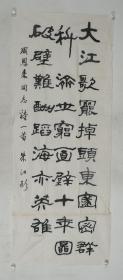 大江歌罷掉頭東邃密群
科濟世窮面壁十年圖
破壁難酬蹈海亦英雄
周恩来同志詩一首